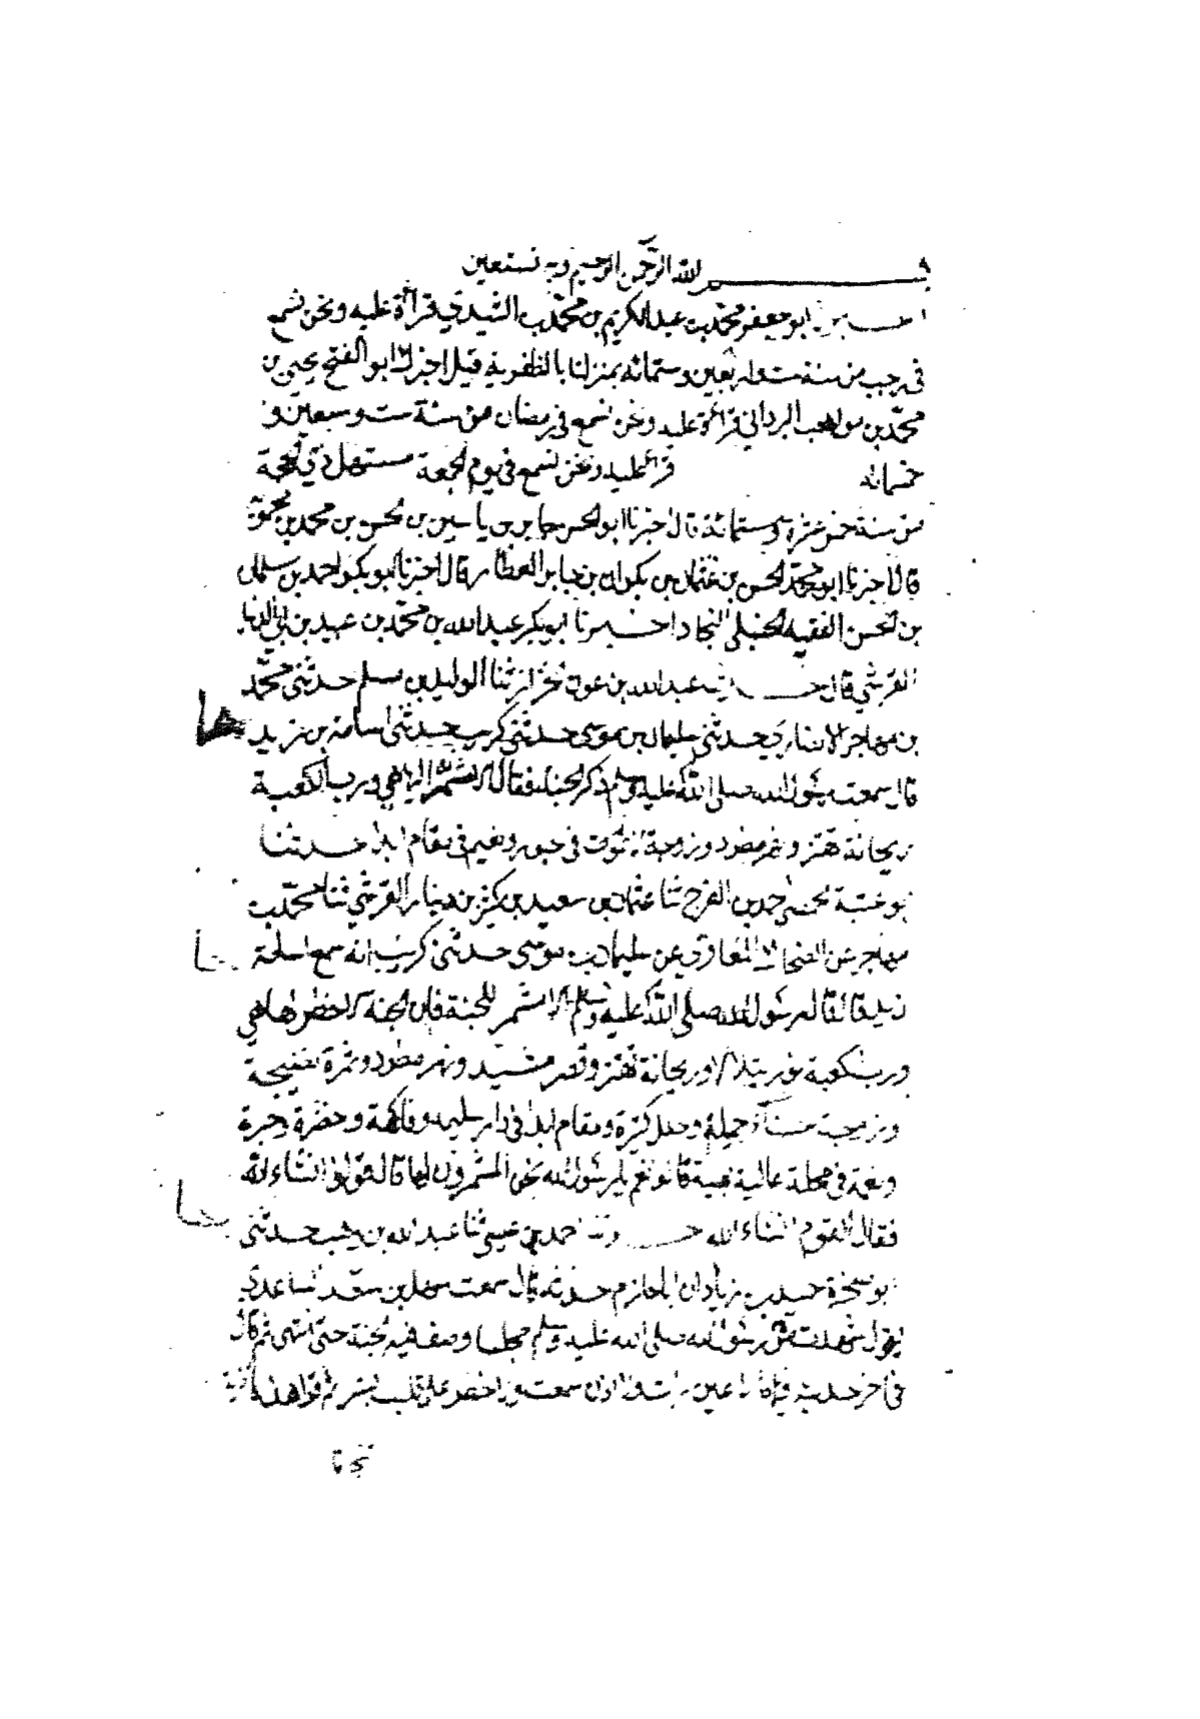 بسم الله الرحمن الرحيم وبه نستعين
ابو جعفر محمد بن عبد الكريم بن محمد بن السيدي قراءة عليه ونحن نسمع
في رجب من سنة ست واربعين وستمائة بمنزلنا بالظفرية قيل اخبرك ابو الفتح يحيى بن
محمد بن مواهب البرداني قراءة عليه ونحن نسمع في رمضان من سنة ست وسبعين و
خمسمائه قراءة عليه ونحن نسمع في يوم الجمعة مستهل ذي الحجة
من سنة خمس عشرة وستمائة قال اخبرنا ابو الحسن جابر بن ياسين بن الحسن بن محمد بن محمويه
قال اخبرنا ابو محمد الحسن بن عثمان بن بكران بن جابر العطار قال اخبرنا ابو بكر احمد بن سلمان
بن الحسن الفقيه الحنبلي النجاد اخبرنا ابو بكر عبد الله بن محمد بن عبيد بن ابي الدنيا
القرشي قال عبد الله بن عون الخراز ثنا الوليد بن مسلم حدثني محمد
بن مهاجر الانصاري حدثني سليمان بن موسى حدثني كريب حدثني اسامة بن زيد
قال سمعت رسول الله صلى الله عليه وسلم ذكر الجنة فقال الا مشمر لها هي ورب الكعبة
ريحانة تهتز ونهر مطرد وزوجة لا تموت في حبور ونعيم في مقام ابدا حدثنا
ابو عتبة الحمصي احمد بن الفرج ثنا عثمان بن سعيد بن كثير بن دينار القرشي ثنا محمد بن
مهاجر عن الضحاك المعافري عن سليمان بن موسى حدثني كريب انه سمع اسامة
بن زيد قال قال رسول الله صلى الله عليه وسلم الا مشمر للجنة فان الجنة لا خطر لها هي
ورب الكعبة نور يتلألأ وريحانة تهتز وقصر مشيد ونهر مطرد وثمرة نضيجة
وزوجة حسناء جميلة وحلل كثيرة ومقام ابدا في دار سليمة وفاكهة وخضرة وحبرة
ونعمة في محلة عالية بهية قالوا نعم يا رسول الله نحن المشمرون لها قال قولوا ان شاء الله
فقال القوم ان شاء الله حدثنا احمد بن عيسى ثنا عبد الله بن وهب حدثني
ابو صخرة حميد بن زياد ان ابا حازم حدثه قال سمعت سهل بن سعد الساعدي
يقول شهدت من رسول الله صلى الله عليه وسلم مجلسا وصف فيه الجنة حتى انتهى ثم قال
في اخر حديثه فيها ما لا عين رات ولا اذن سمعت ولا خطر على قلب بشر ثم قرا هذه الاية
تتجافى